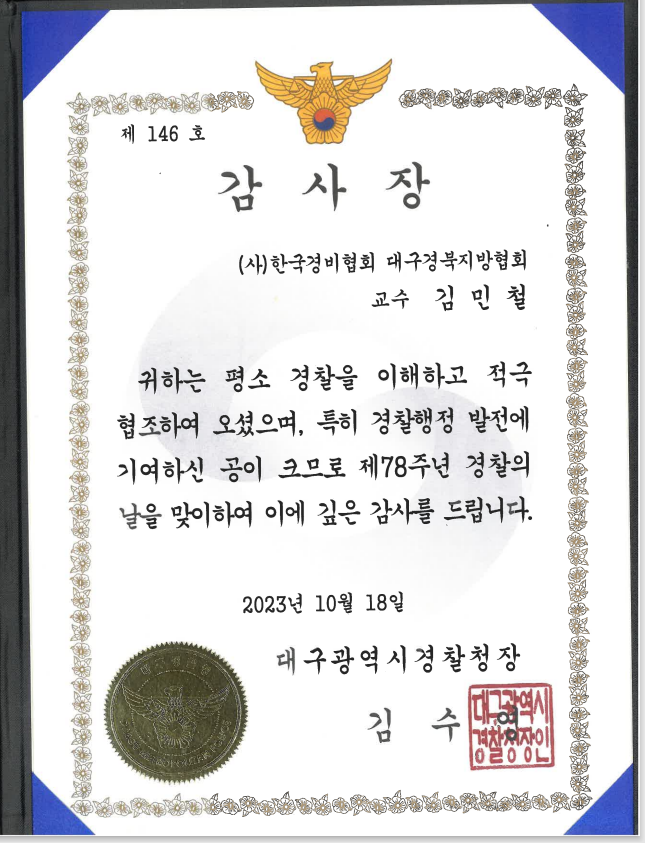 제 146 호
감 사 장
(사)한국경비협회 대구경북지방협회
교수 김 민 철
귀하는 평소 경찰을 이해하고 적극
협조하여 오셨으며, 특히 경찰행정 발전에
기여하신 공이 크므로 제78주년 경찰의
날을 맞이하여 이에 깊은 감사를 드립니다.
2023년 10월 18일
대구광역시경찰청장
김 수 영
대구광역시
경찰청장인